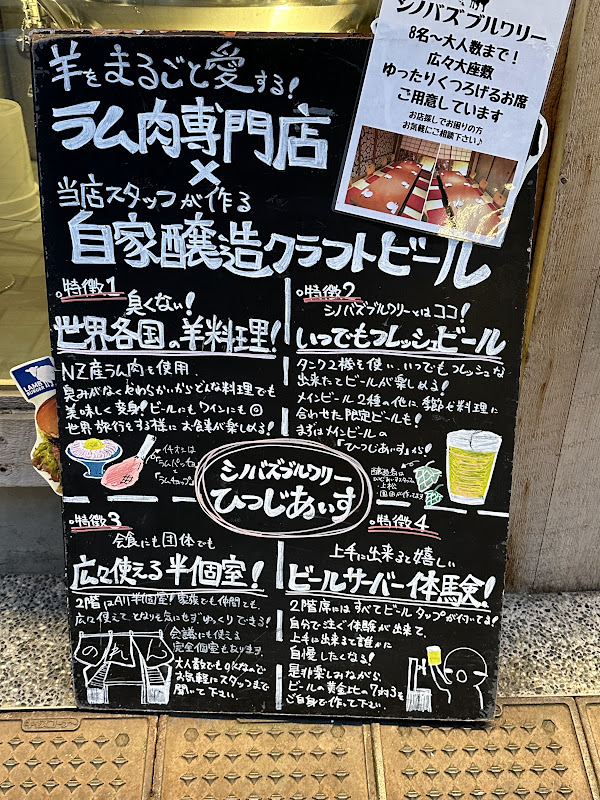 シノバズブルワリー
8名～大人数まで！
広々大座敷
ゆったりくつろげるお席
ご用意しています
お店探しでお困りの方
お気軽にご相談下さい♪
羊をまるごと愛する！
ラム肉専門店
×
当店スタッフが作る
自家醸造クラフトビール
特徴1
臭くない！
世界各国の羊料理！
NZ産ラム肉を使用
臭みがなくやわらかいからどんな料理でも
美味しく変身！ビールにもワインにも◎
世界旅行をする様にお食事が楽しめる！
イチオシは
ラムパッチョ
「ラムチョップ」
特徴2
シノバズブルワリーとはココ！
いつでもフレッシュビール
タンク2機を使い、いつでもフレッシュな
出来たてビールが楽しめる！
メインビール2種の他に季節や料理に
合わせた限定ビールも！
まずはメインビールの
「ひつじあいす」から！
上松
LAMB
BURGER
シノバズブルワリー
ひつじあいす
特徴3
会食にも団体でも
広々使える半個室！
2階はAll半個室！家族でも仲間でも、
広く使えて、となりを気にせずゆっくりできる！
会議にも使える
完全個室もあります。
大人数でもOKなので
お気軽にスタッフまで
聞いて下さい。
のれん
特徴4
上手に出来ると嬉しい
ビールサーバー体験！
2階席にはすべてビールタップが付いてる！
自分で注ぐ体験が出来て、
上手に出来ると誰かに
自慢したくなる！
是非楽しみながら
ビールの黄金比の7対3を
ご自身で作って下さい。